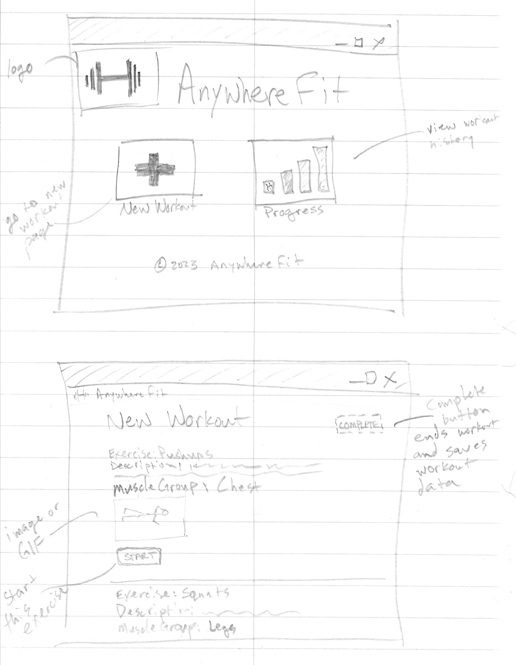 logo
AnywhereFit
view workout
history
go to new
workout
page
New Workout
Progress
© 2023 AnywhereFit
AnywhereFit
New Workout
COMPLETE
Complete
button
ends workout
and saves
workout
data
Exercise: Pushups
Description:
Muscle Group: Chest
image or
GIF
START
start
this
exercise
Exercise: Squats
Description:
Muscle Group: Legs